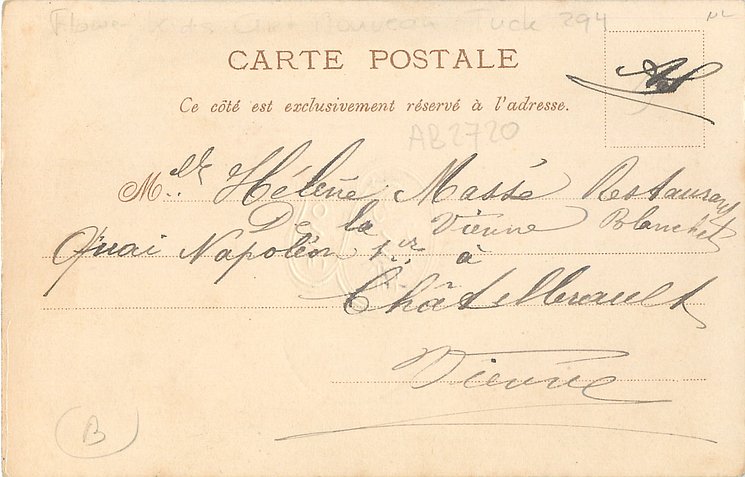 Flower Kids Art Nouveau Tuck 294
CARTE POSTALE
Ce côté est exclusivement réservé à l'adresse.
AB2720
M.elle Hélène Massé Restaurant
De la Vienne Blanchet
Quai Napoléon 1.er à
Châtellerault
Vienne
B